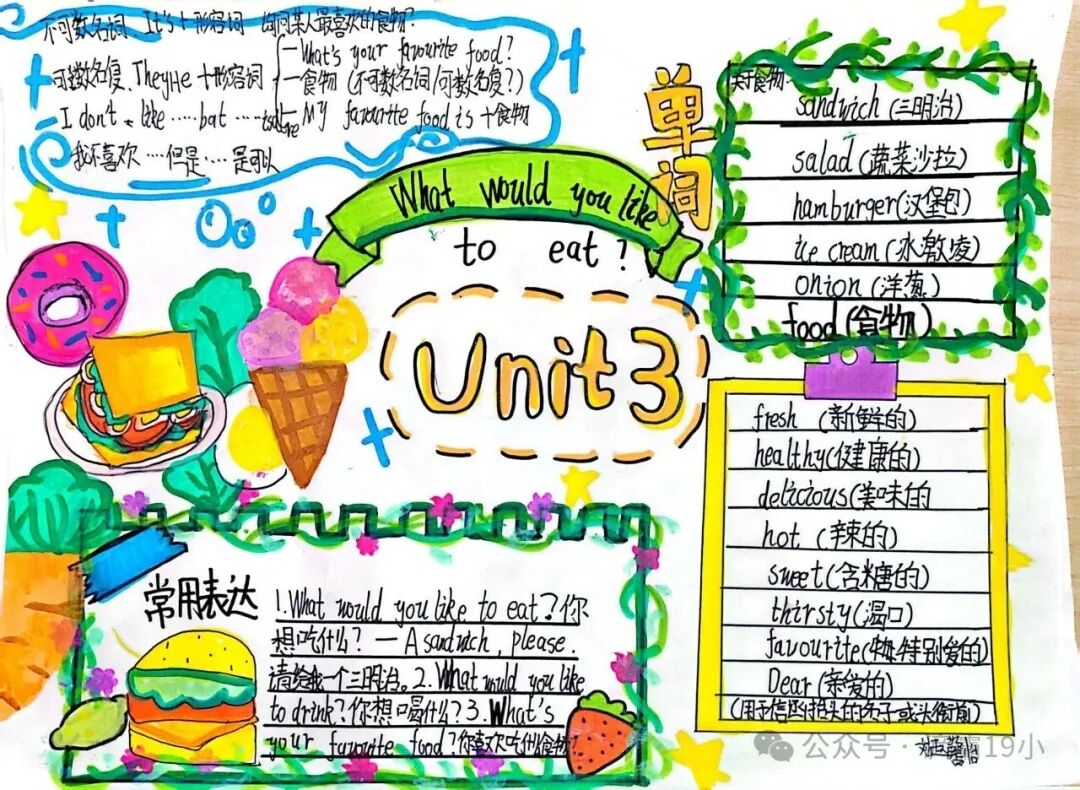 不可数名词、It's+形容词 询问某人最喜欢的食物?
可数名复、They're +形容词
—What's your favourite food?
—食物(不可数名词/可数名复?)
I don't like ……bat ……
—My favourite food is +食物
我不喜欢……但是……是可以
What would you like
to eat?
Unit 3
单词
关于食物
sandwich (三明治)
salad (蔬菜沙拉)
hamburger(汉堡包)
ice cream (冰激凌)
onion (洋葱)
food (食物)
fresh (新鲜的)
healthy(健康的)
delicious(美味的
hot (辣的)
sweet(含糖的)
thirsty(渴口)
favourite(特别爱的)
Dear (亲爱的)
(用于信函抬头的名字或头衔前)
常用表达
1.What would you like to eat?你
想吃什么? — A sandwich, please.
请给我一个三明治。2.What would you like
to drink?你想喝什么?3.What's
your favourite food?你喜欢吃什么食物?
公众号 · 19小